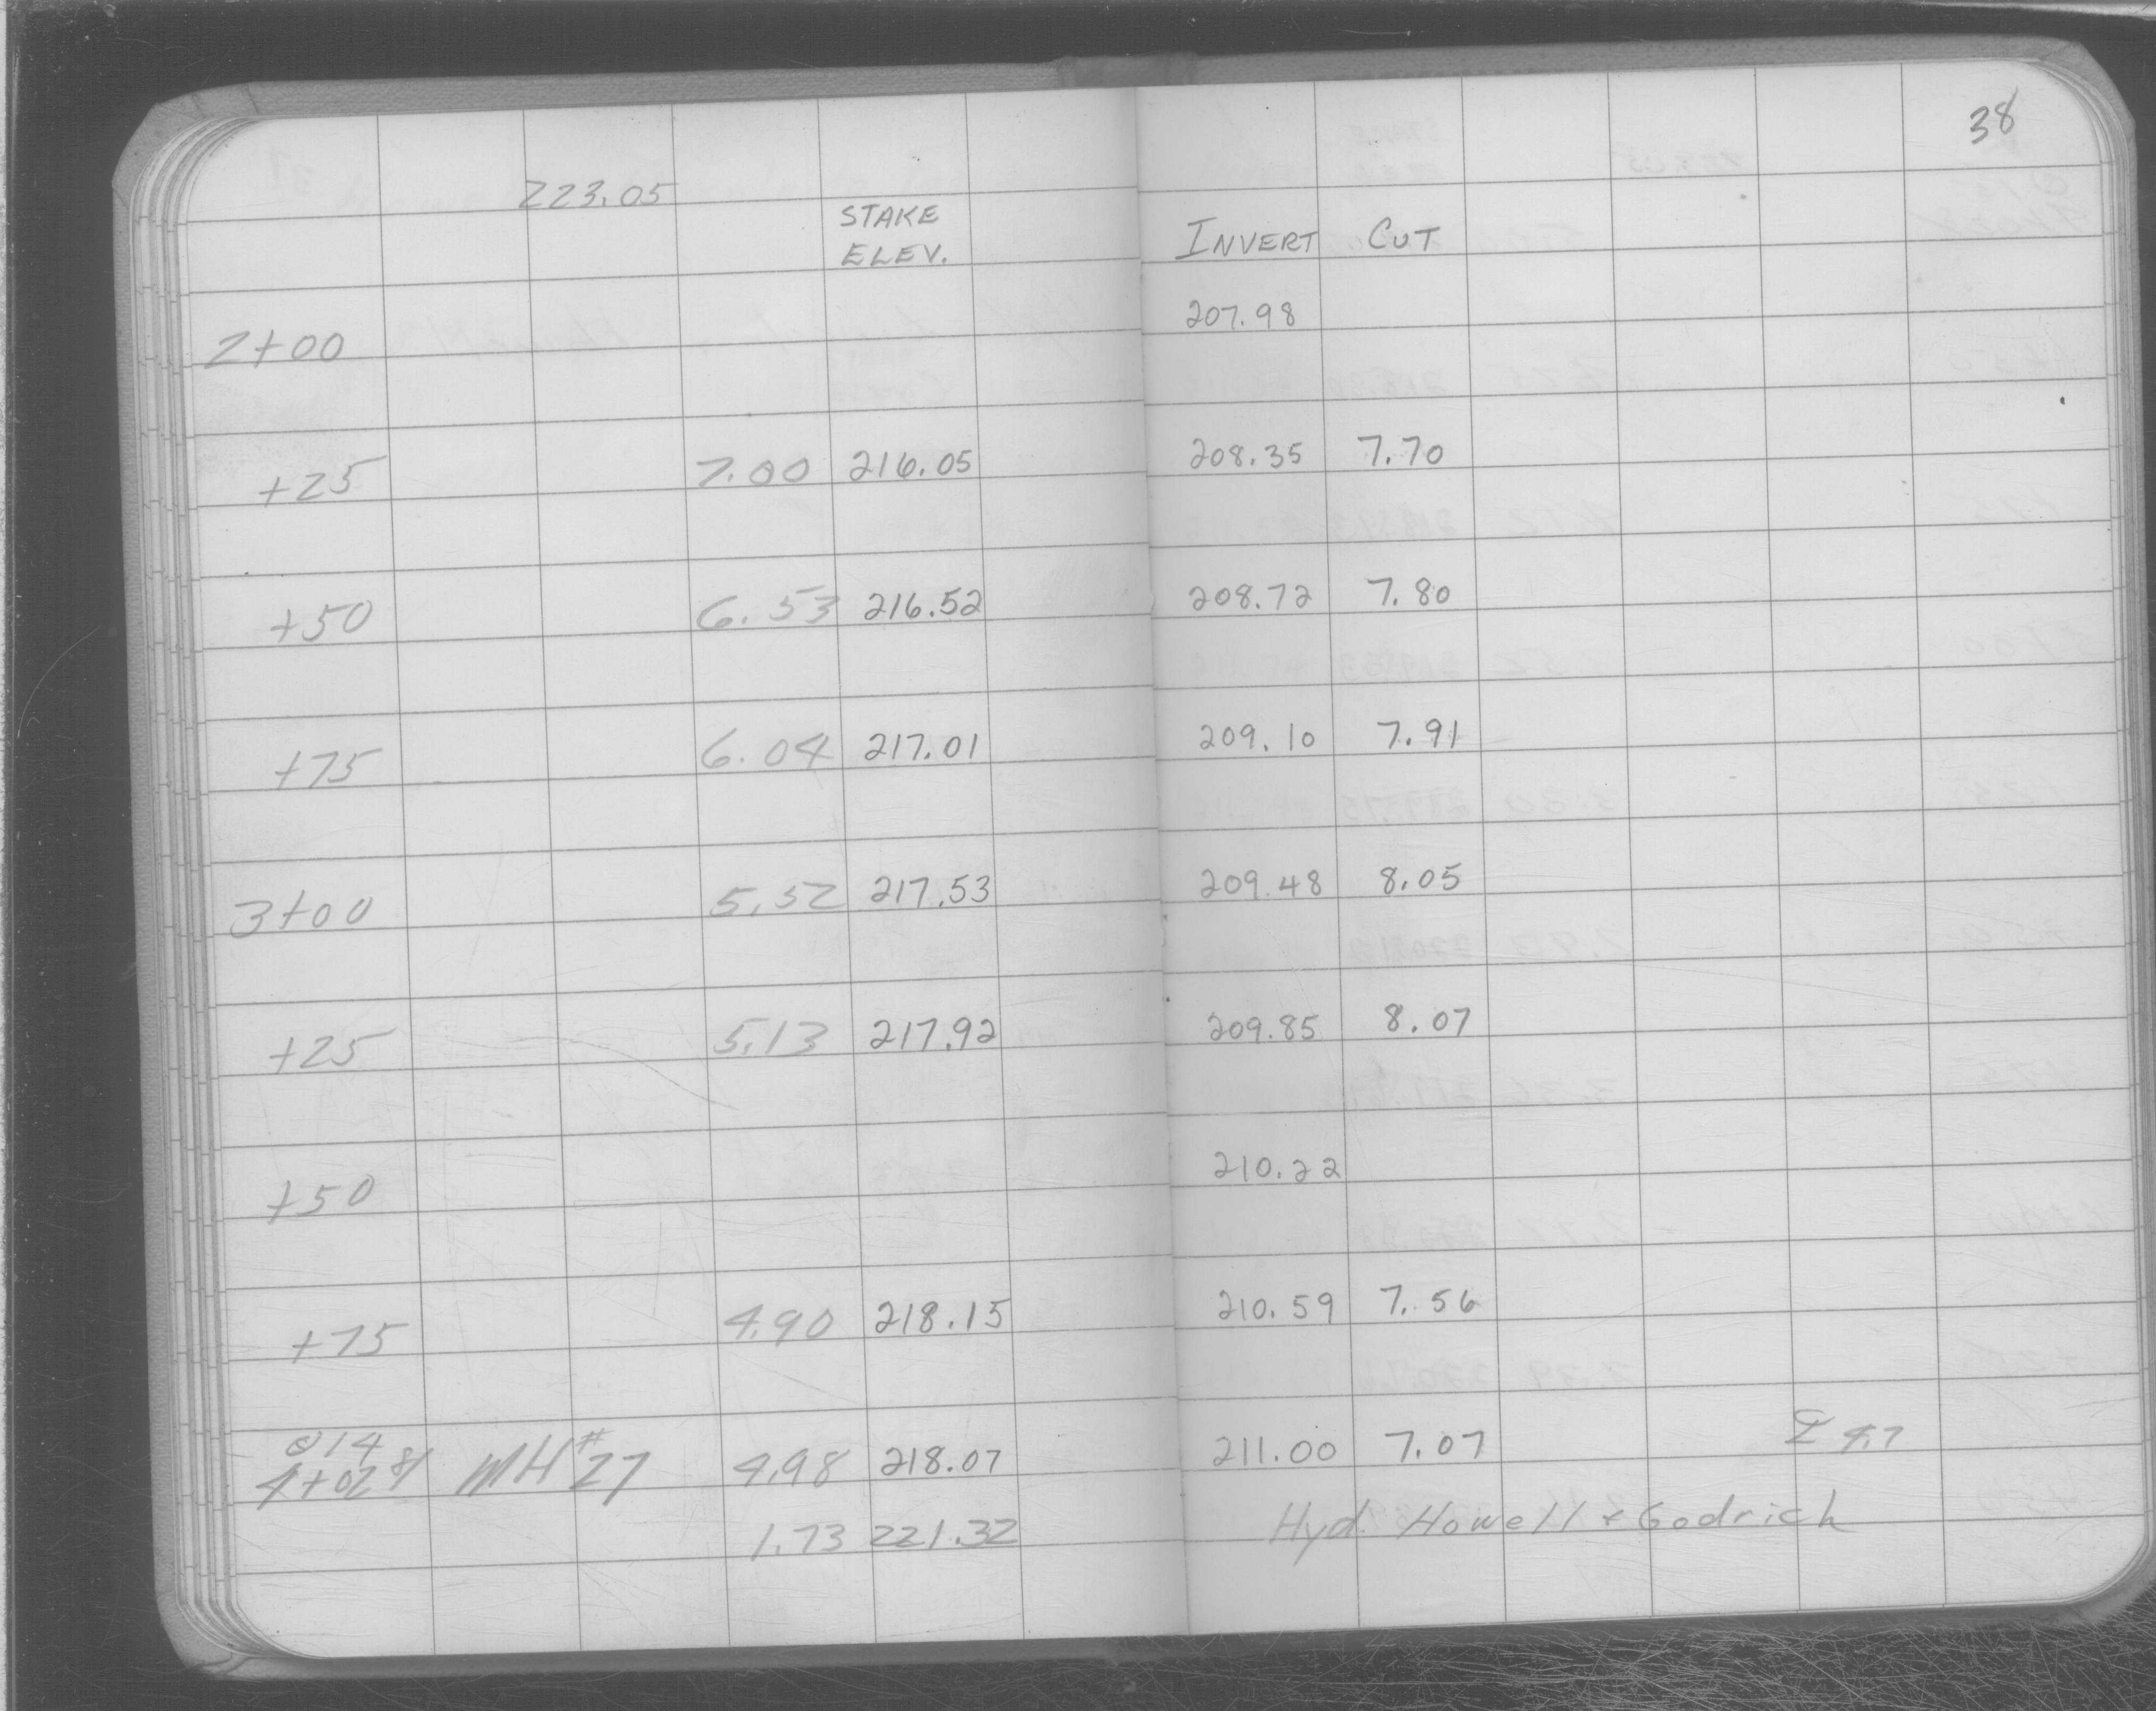 38
223.05
STAKE
ELEV. INVERT CUT
2+00 207.98
+25 7.00 216.05 208.35 7.70
+50 6.53 216.52 208.72 7.80
+75 6.04 217.01 209.10 7.91
3+00 5.52 217.53 209.48 8.05
+25 5.13 217.92 209.85 8.07
+50 210.22
+75 4.90 218.15 210.59 7.56
4+02 MH #27 4.98 218.07 211.00 7.07
1.73 221.32 Hyd. Howell + Godrich